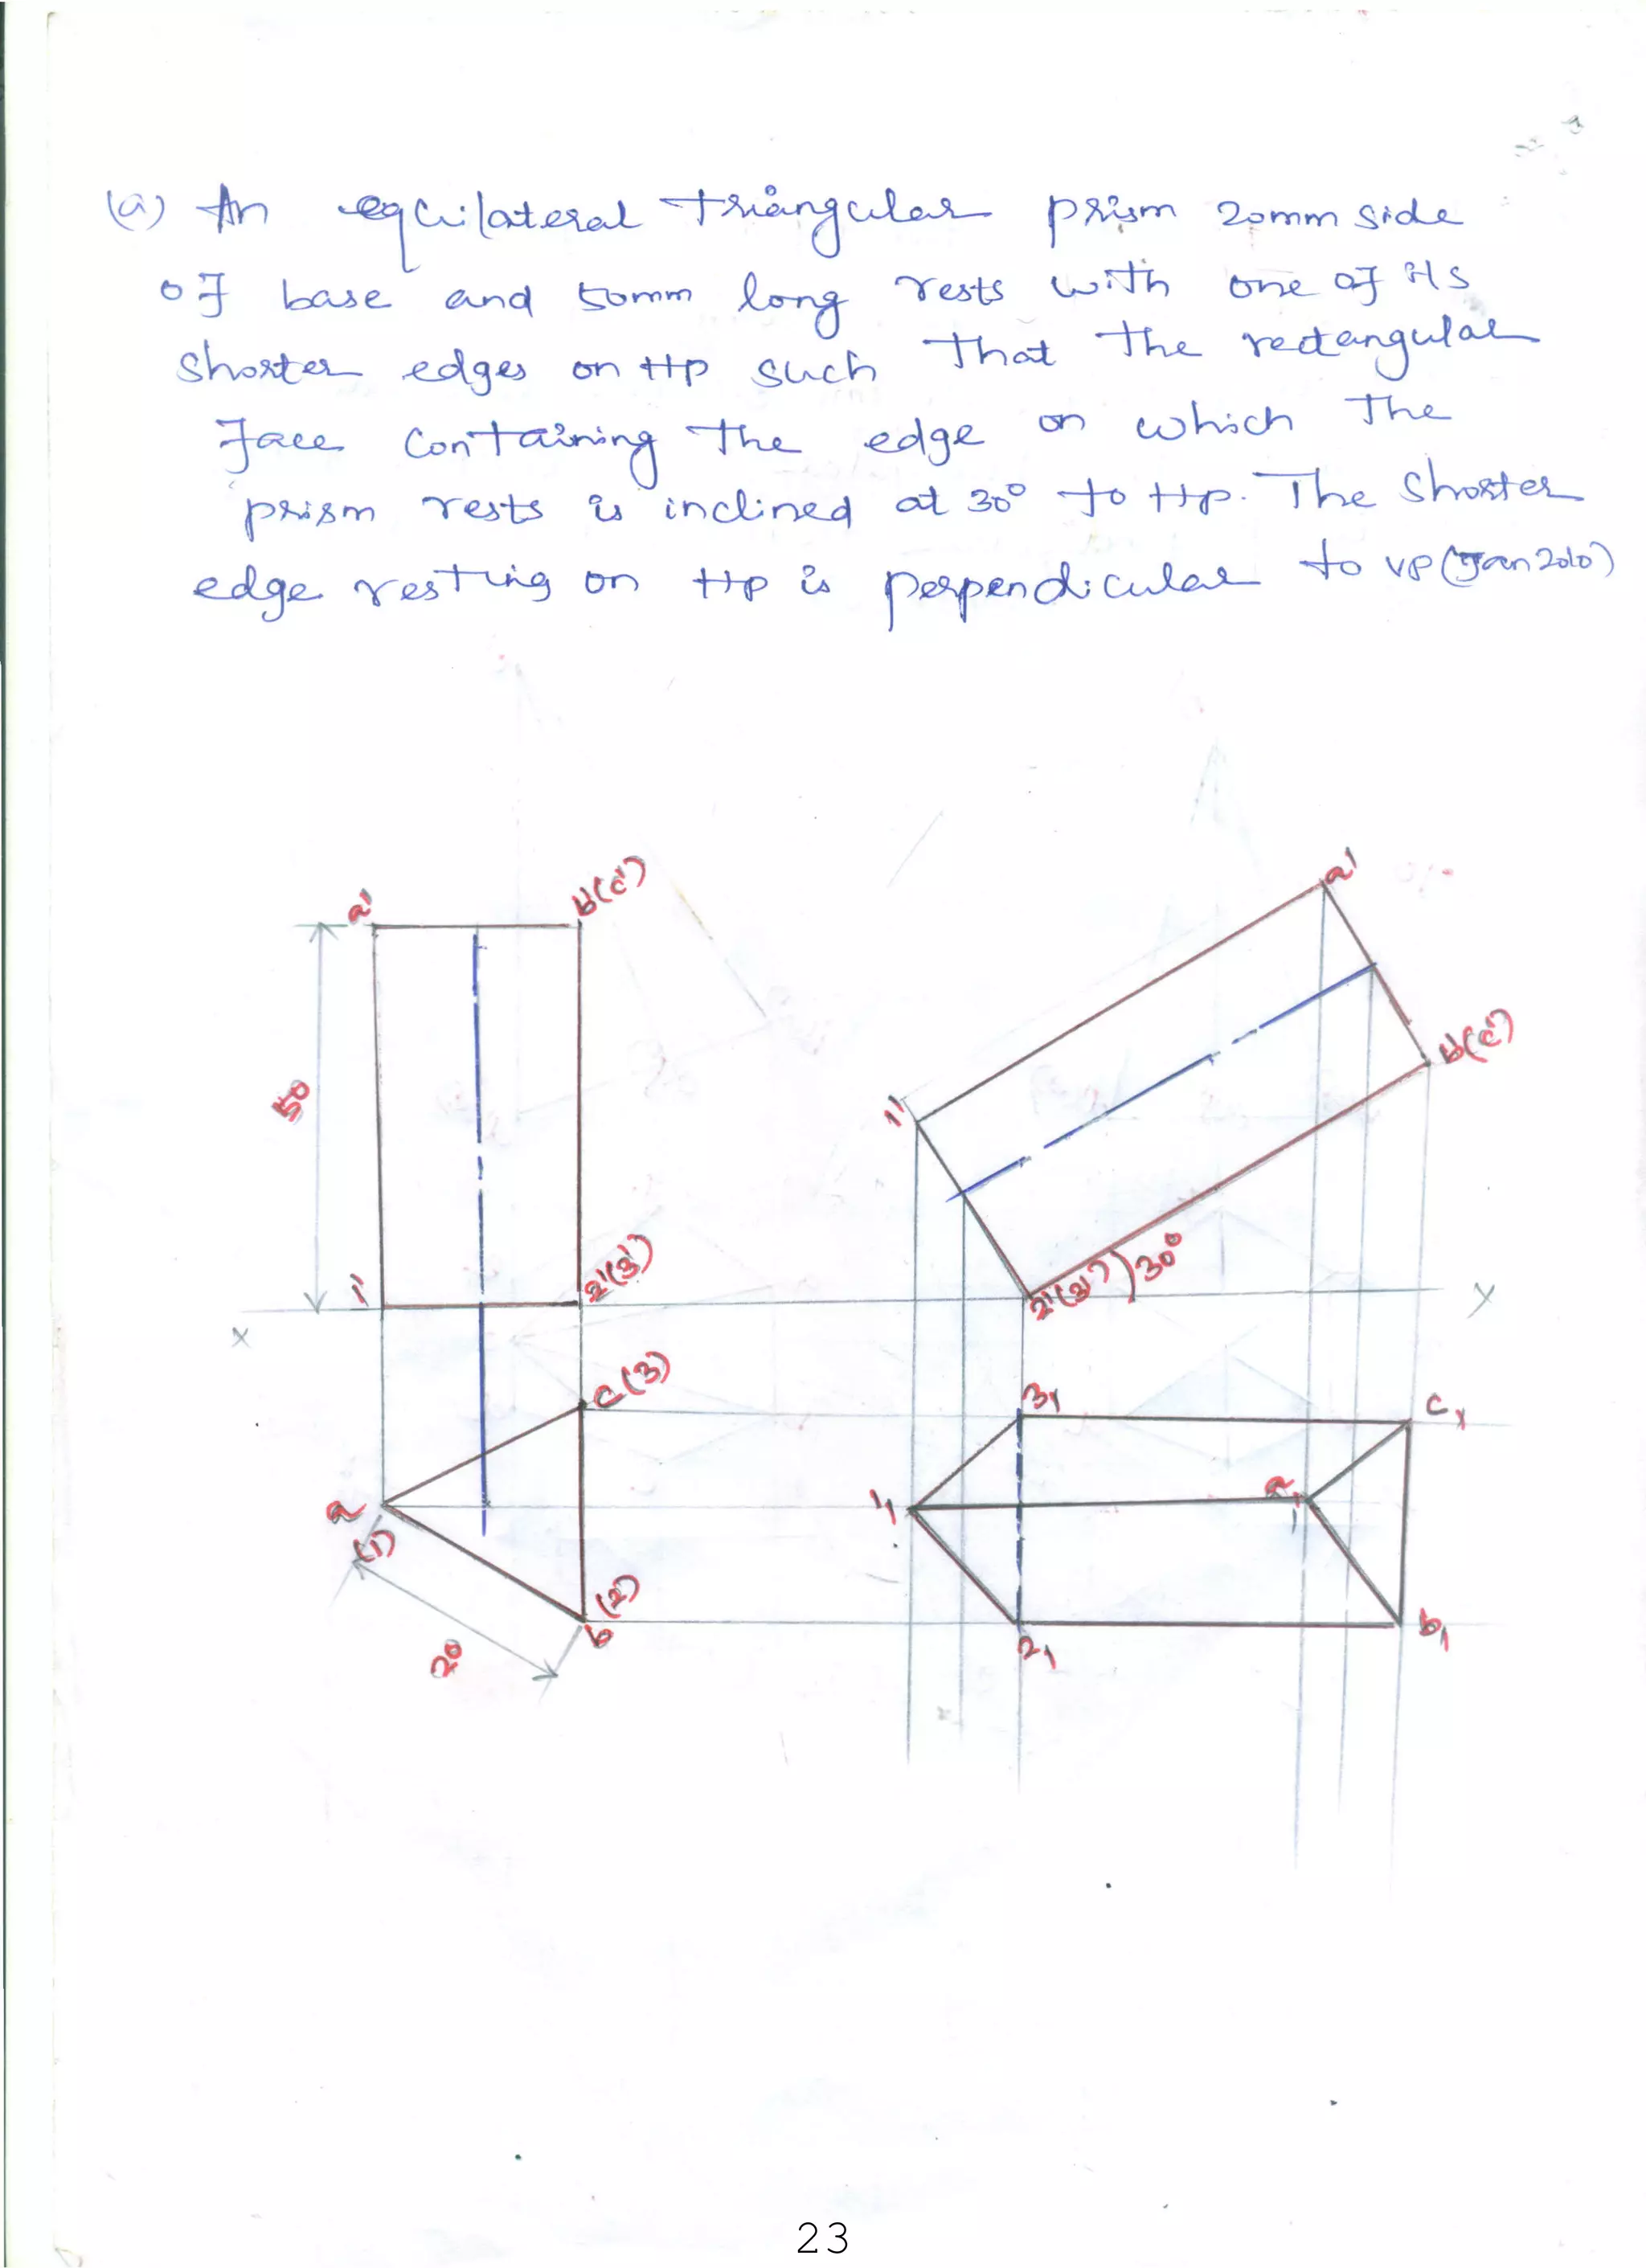 (a) An equilateral triangular prism 20mm side
of base and 50mm long rests with one of its
shorter edges on HP such that the rectangular
face containing the edge on which the
prism rests is inclined at 30° to HP. The shorter
edge resting on HP is perpendicular to VP (Jan 2010)
a' b'(c') a'
b'(c')
50
1'
1' 2'(3') 30°
2'(3')
X Y
c(3) 3₁ c₁
a 1₁ a₁
(1)
b(2) 2₁ b₁
20
23